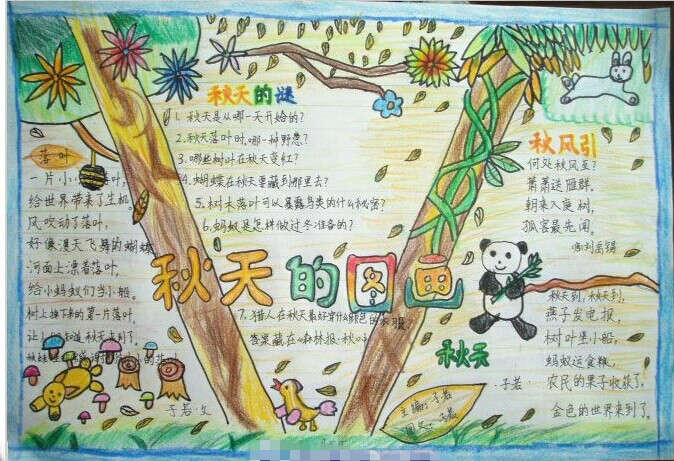 落叶
一片小小落叶，
给世界带来了生机
风吹动了落叶，
好像漫天飞舞的蝴蝶
河面上漂着落叶，
给小蚂蚁们当小船。
树上掉下来的第一片落叶，
让人们知道秋天来到了，
子若·文
秋天的谜
1.秋天是从哪一天开始的？
2.秋天落叶时，哪一种野
3.哪些树叶在秋天变红？
4.蝴蝶在秋天要藏到哪里去？
5.树木落叶可以暴露鸟类的什么秘密？
6.蚂蚁是怎样做过冬准备的？
秋天的图画
7.猎人在秋天最好穿什么颜色的衣服
答案藏在《森林报·秋
秋风引
何处秋风至？
萧萧送雁群。
朝来入庭树，
孤客最先闻。
刘禹锡
秋天
·子若·
秋天到，秋天到，
燕子发电报，
树叶堡小船，
蚂蚁运食粮，
农民的果子收获了，
金色的世界来到了。
主编：子若
图文：子若